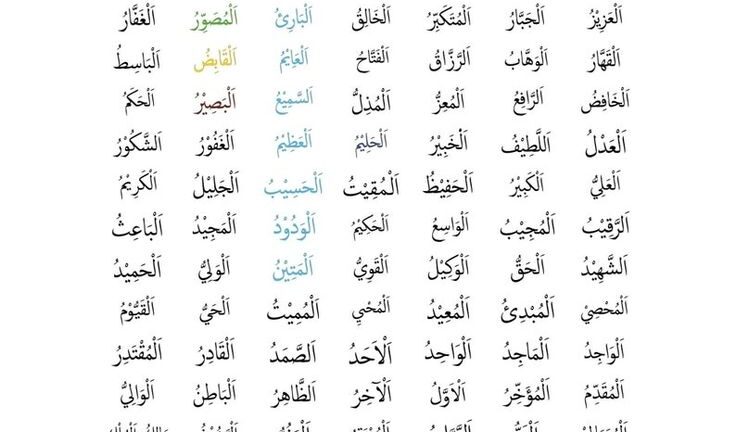 اَلْعَزِيْزُ اَلْجَبَّارُ اَلْمُتَكَبِّرُ اَلْخَالِقُ اَلْبَارِئُ اَلْمُصَوِّرُ اَلْغَفَّارُ
اَلْقَهَّارُ اَلْوَهَّابُ اَلرَّزَّاقُ اَلْفَتَّاحُ اَلْعَايْمُ اَلْقَابِضُ اَلْبَاسِطُ
اَلْخَافِضُ اَلرَّافِعُ اَلْمُعِزُّ اَلْمُذِلُّ اَلسَّمِيْعُ اَلْبَصِيْرُ اَلْحَكَمُ
اَلْعَدْلُ اَللَّطِيْفُ اَلْخَبِيْرُ اَلْحَلِيْمُ اَلْعَظِيْمُ اَلْغَفُوْرُ اَلشَّكُوْرُ
اَلْعَلِيُّ اَلْكَبِيْرُ اَلْحَفِيْظُ اَلْمُقِيْتُ اَلْحَسِيْبُ اَلْجَلِيْلُ اَلْكَرِيْمُ
اَلرَّقِيْبُ اَلْمُجِيْبُ اَلْوَاسِعُ اَلْحَكِيْمُ اَلْوَدُوْدُ اَلْمَجِيْدُ اَلْبَاعِثُ
اَلشَّهِيْدُ اَلْحَقُّ اَلْوَكِيْلُ اَلْقَوِيُّ اَلْمَتِيْنُ اَلْوَلِيُّ اَلْحَمِيْدُ
اَلْمُحْصِيْ اَلْمُبْدِئُ اَلْمُعِيْدُ اَلْمُحْيِ اَلْمُمِيْتُ اَلْحَيُّ اَلْقَيُّوْمُ
اَلْوَاجِدُ اَلْمَاجِدُ اَلْوَاحِدُ اَلْاَحَدُ اَلصَّمَدُ اَلْقَادِرُ اَلْمُقْتَدِرُ
اَلْمُقَدِّمُ اَلْمُؤَخِّرُ اَلْاَوَّلُ اَلْآخِرُ اَلظَّاهِرُ اَلْبَاطِنُ اَلْوَالِيُّ